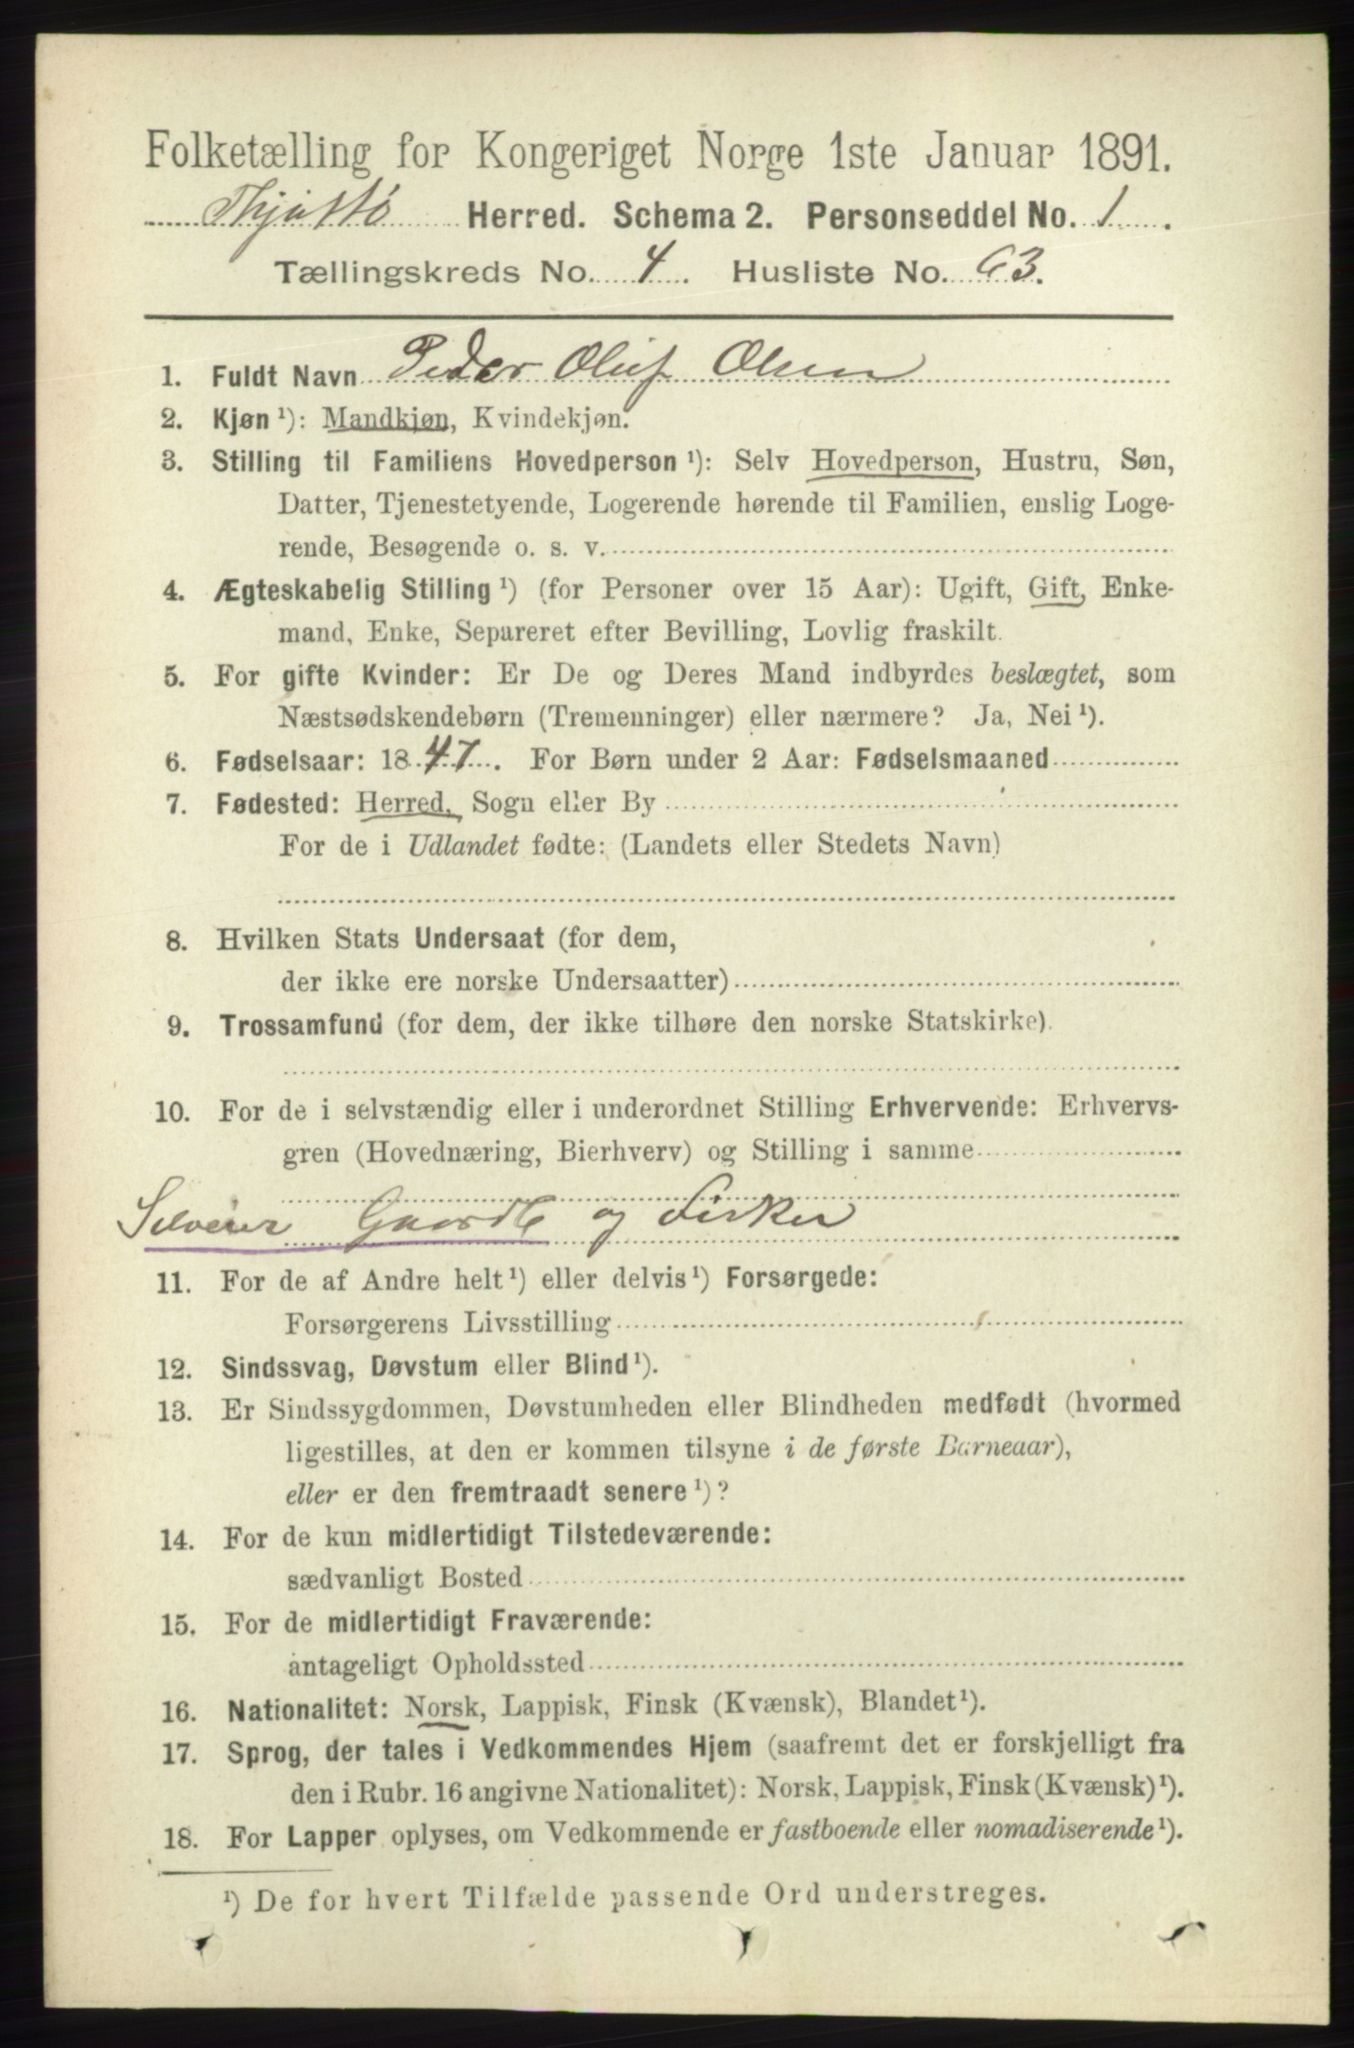 Folketælling for Kongeriget Norge 1ste Januar 1891.
Thjøttø Herred. Schema 2. Personseddel No. 1.
Tællingskreds No. 4. Husliste No. 63.
1. Fuldt Navn Peder Oluf Olsen
2. Kjøn ¹): Mandkjøn, Kvindekjøn.
3. Stilling til Familiens Hovedperson ¹): Selv Hovedperson, Hustru, Søn,
Datter, Tjenestetyende, Logerende hørende til Familien, enslig Loge-
rende, Besøgende o. s. v.
4. Ægteskabelig Stilling ¹) (for Personer over 15 Aar): Ugift, Gift, Enke-
mand, Enke, Separeret efter Bevilling, Lovlig fraskilt.
5. For gifte Kvinder: Er De og Deres Mand indbyrdes beslægtet, som
Næstsødskendebørn (Tremenninger) eller nærmere? Ja, Nei ¹).
6. Fødselsaar: 1847. For Børn under 2 Aar: Fødselsmaaned
7. Fødested: Herred, Sogn eller By
For de i Udlandet fødte: (Landets eller Stedets Navn)
8. Hvilken Stats Undersaat (for dem,
der ikke ere norske Undersaatter)
9. Trossamfund (for dem, der ikke tilhøre den norske Statskirke).
10. For de i selvstændig eller i underordnet Stilling Erhvervende: Erhvervs-
gren (Hovednæring, Bierhverv) og Stilling i samme
Selveier Gaardb og Fisker
11. For de af Andre helt ¹) eller delvis ¹) Forsørgede:
Forsørgerens Livsstilling
12. Sindssvag, Døvstum eller Blind ¹).
13. Er Sindssygdommen, Døvstumheden eller Blindheden medfødt (hvormed
ligestilles, at den er kommen tilsyne i de første Barneaar),
eller er den fremtraadt senere ¹)?
14. For de kun midlertidigt Tilstedeværende:
sædvanligt Bosted
15. For de midlertidigt Fraværende:
antageligt Opholdssted
16. Nationalitet: Norsk, Lappisk, Finsk (Kvænsk), Blandet ¹).
17. Sprog, der tales i Vedkommendes Hjem (saafremt det er forskjelligt fra
den i Rubr. 16 angivne Nationalitet): Norsk, Lappisk, Finsk (Kvænsk) ¹).
18. For Lapper oplyses, om Vedkommende er fastboende eller nomadiserende ¹).
¹) De for hvert Tilfælde passende Ord understreges.